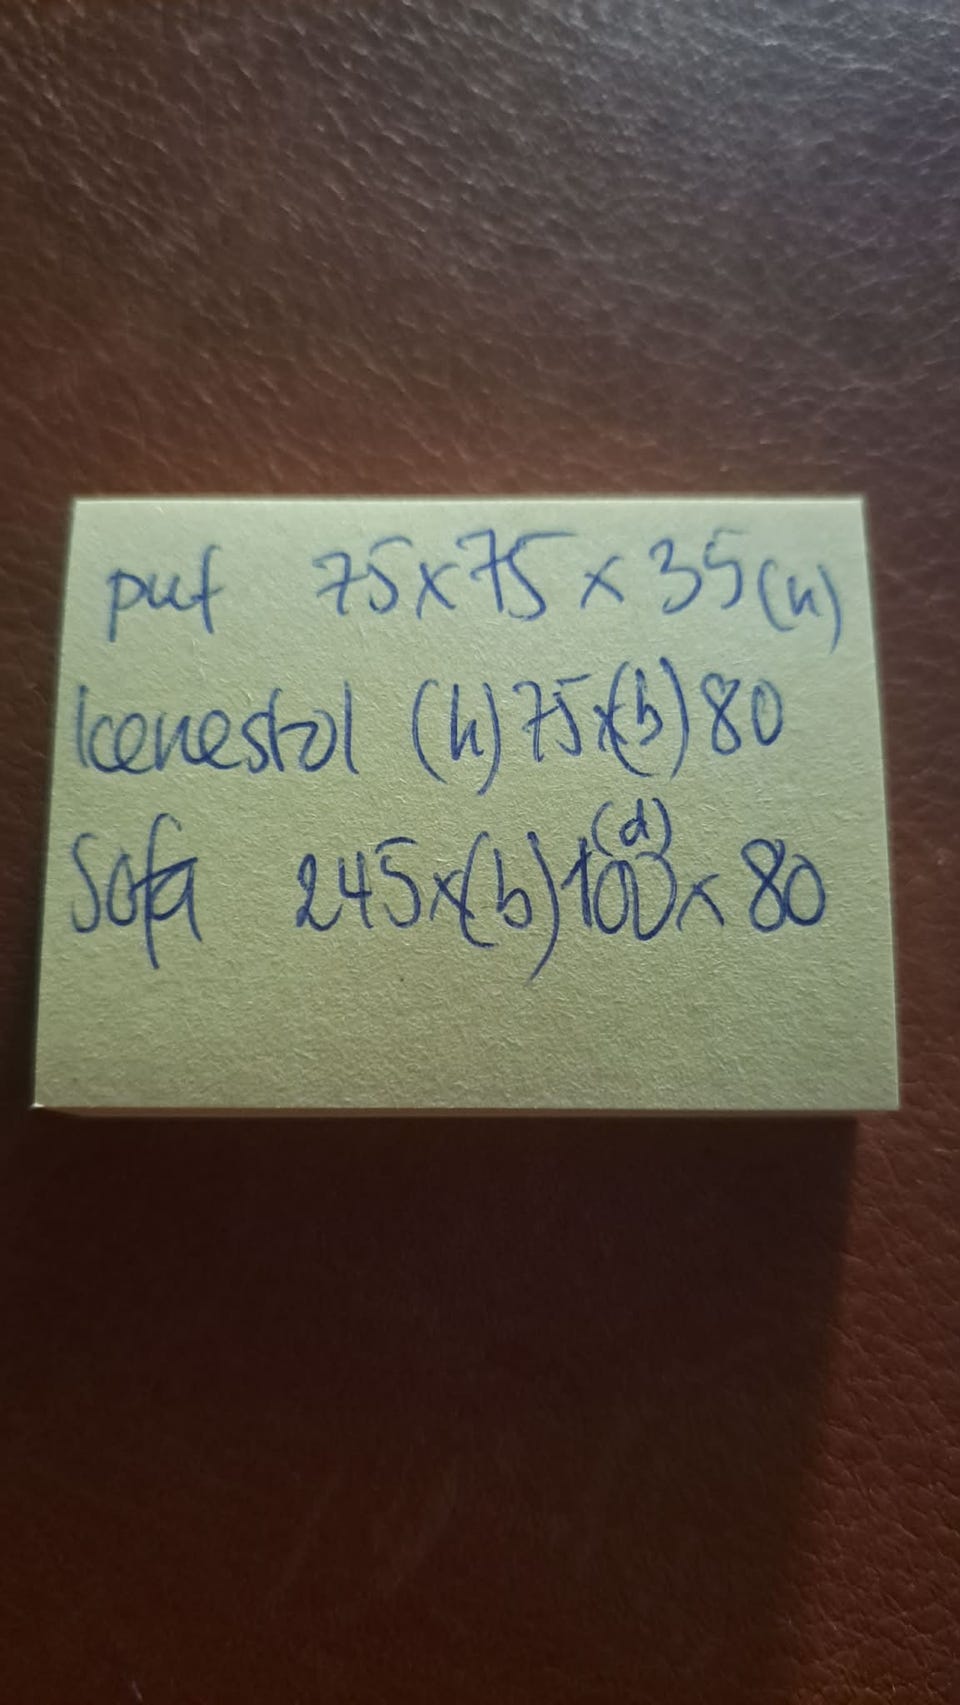 puf 75x75 x 35(h)
lænestol (h)75x(b)80
Sofa 245x(b)100(d)x 80